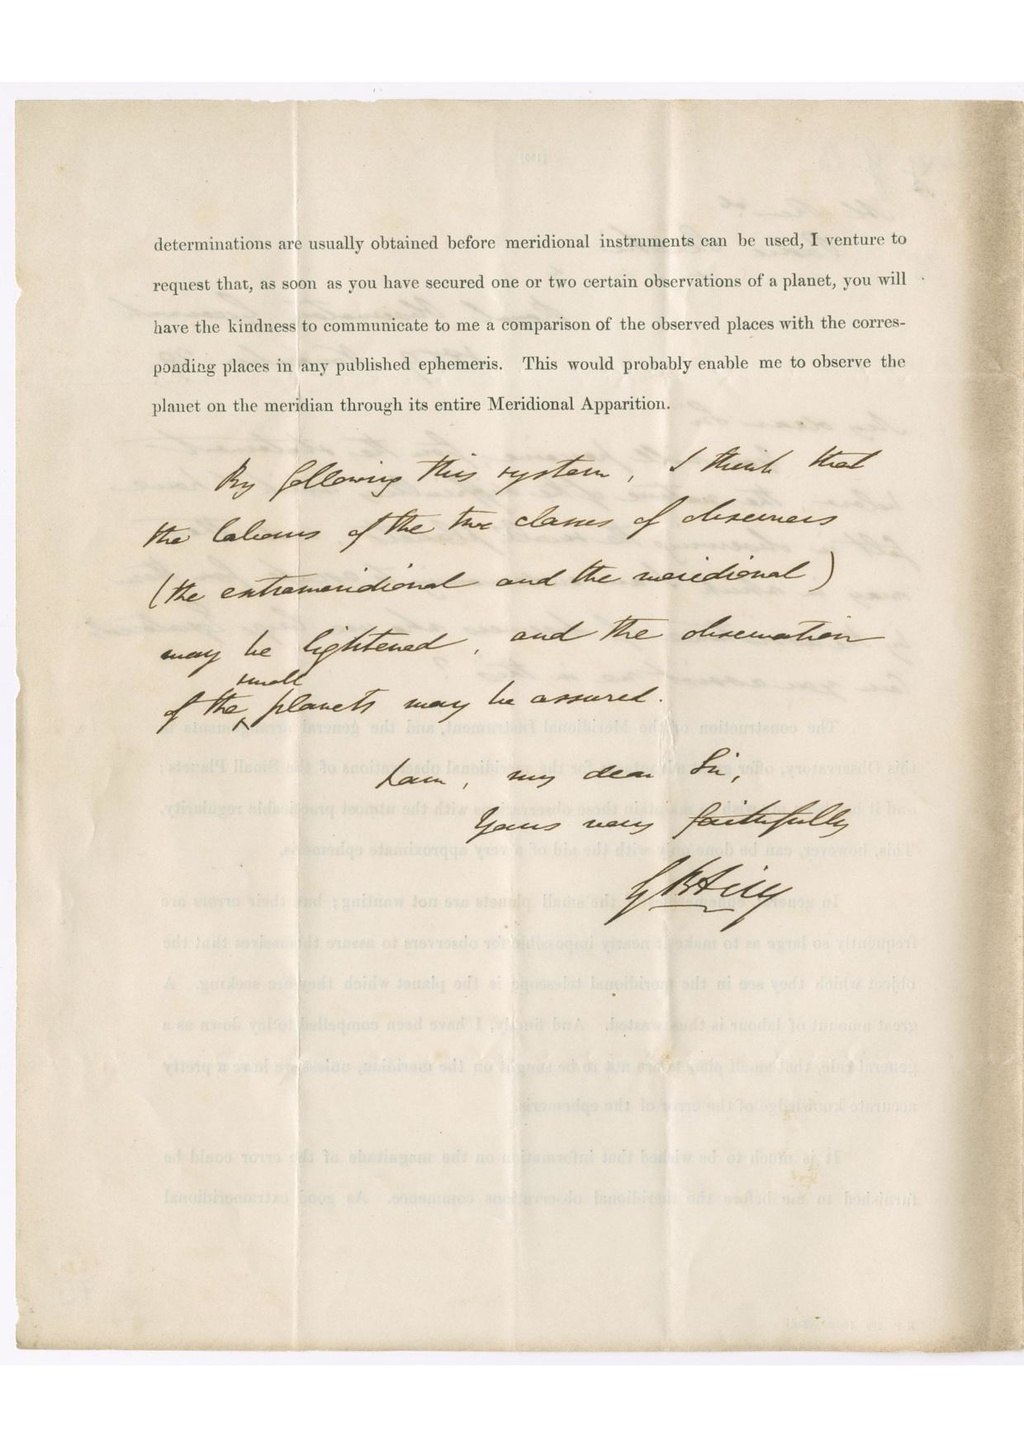 determinations are usually obtained before meridional instruments can be used, I venture to
request that, as soon as you have secured one or two certain observations of a planet, you will
have the kindness to communicate to me a comparison of the observed places with the corres-
ponding places in any published ephemeris. This would probably enable me to observe the
planet on the meridian through its entire Meridional Apparition.
By following this system, I think that
the labours of the two classes of observers
(the extrameridional and the meridional)
may be lightened, and the observation
of the small planets may be assured.
I am, my dear Sir,
Yours very faithfully
G B Airy